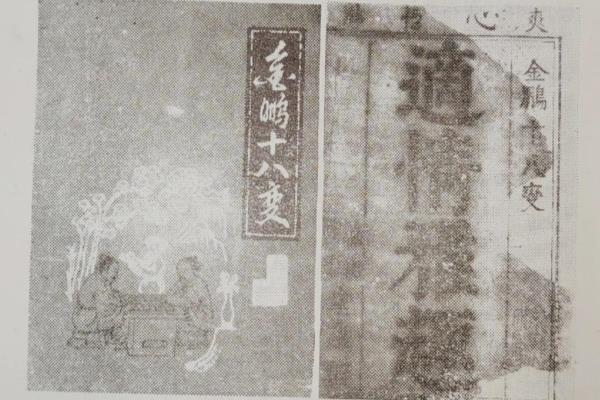 金鹏十八变
爽心
金鵬十八变
適情雅趣